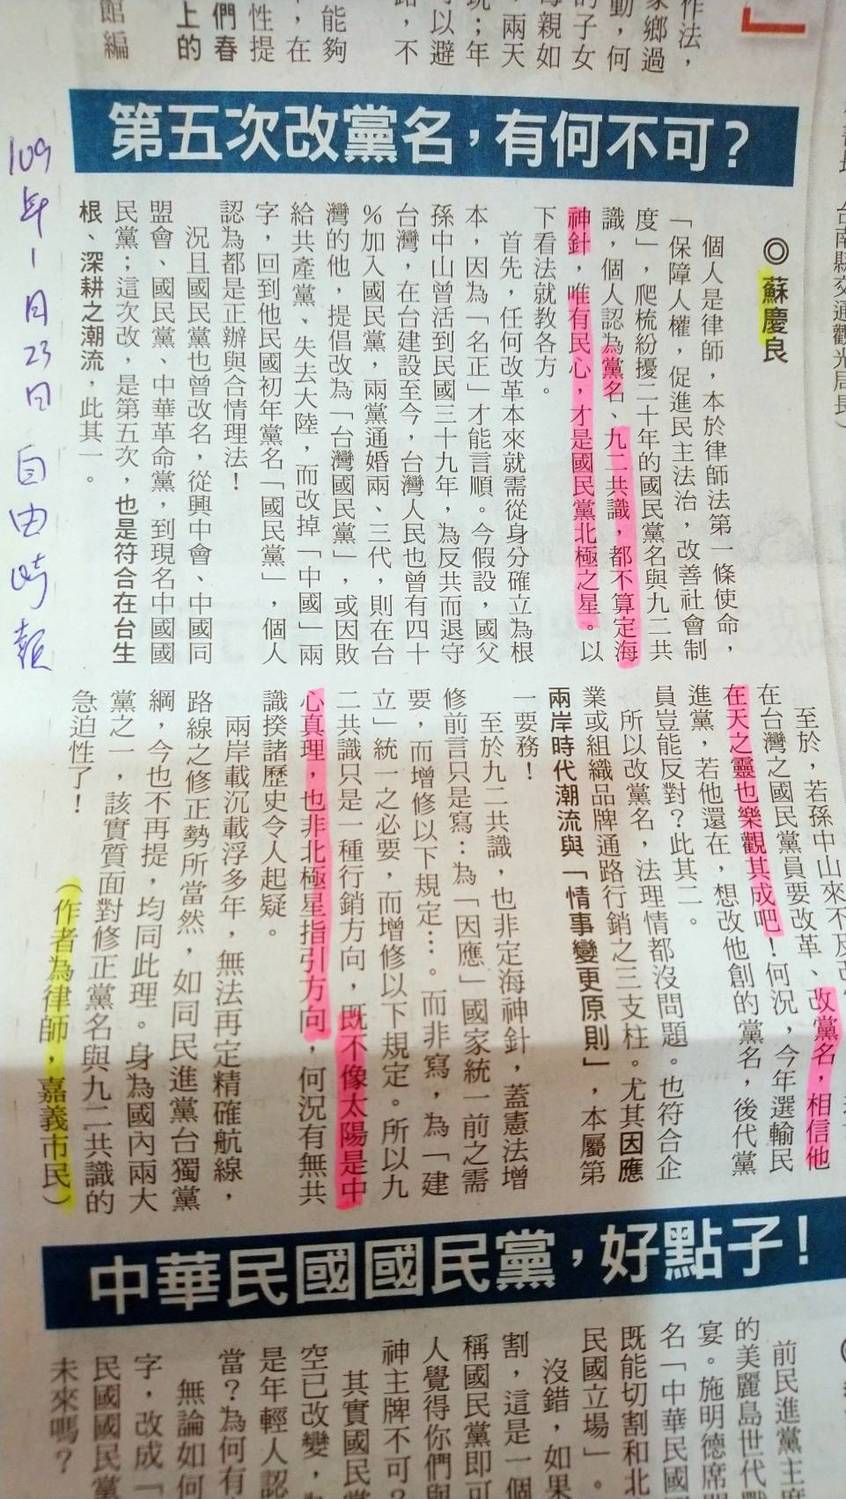 作法，
家鄉過
動，何
的子女
母親如
，兩天
玩；年
可以避
路，不
能夠
，在
性提
們春
上的
館編
台南縣交通觀光局長）
109年1月23日 自由時報
第五次改黨名，有何不可？
◎蘇慶良
個人是律師，本於律師法第一條使命，
「保障人權，促進民主法治，改善社會制
度」，爬梳紛擾二十年的國民黨名與九二共
識，個人認為黨名、九二共識，都不算定海
神針，唯有民心，才是國民黨北極之星。以
下看法就教各方。
首先，任何改革本來就需從身分確立為根
本，因為「名正」才能言順。今假設，國父
孫中山曾活到民國三十九年，為反共而退守
台灣，在台建設至今，台灣人民也曾有四十
%加入國民黨，兩黨通婚兩、三代，則在台
灣的他，提倡改為「台灣國民黨」，或因敗
給共產黨、失去大陸，而改掉「中國」兩
字，回到他民國初年黨名「國民黨」，個人
認為都是正辦與合情理法！
況且國民黨也曾改名，從興中會、中國同
盟會、國民黨、中華革命黨，到現名中國國
民黨；這次改，是第五次，也是符合在台生
根、深耕之潮流，此其一。
至於，若孫中山來不及改
在台灣之國民黨員要改革、改黨名，相信他
在天之靈也樂觀其成吧！何況，今年選輸民
進黨，若他還在，想改他創的黨名，後代黨
員豈能反對？此其二。
所以改黨名，法理情都沒問題。也符合企
業或組織品牌通路行銷之三支柱。尤其因應
兩岸時代潮流與「情事變更原則」，本屬第
一要務！
至於九二共識，也非定海神針，蓋憲法增
修前言只是寫：為「因應」國家統一前之需
要，而增修以下規定…。而非寫，為「建
立」統一之必要，而增修以下規定。所以九
二共識只是一種行銷方向，既不像太陽是中
心真理，也非北極星指引方向，何況有無共
識揆諸歷史令人起疑。
兩岸載沉載浮多年，無法再定精確航線，
路線之修正勢所當然，如同民進黨台獨黨
綱，今也不再提，均同此理。身為國內兩大
黨之一，該實質面對修正黨名與九二共識的
急迫性了！
（作者為律師，嘉義市民）
中華民國國民黨，好點子！
前民進黨主席
的美麗島世代戰
宴。施明德席間
名「中華民國
既能切割和北
民國立場」。
沒錯，如果
割，這是一個
稱國民黨即可
人覺得你們與
神主牌不可？
其實國民黨
空已改變，
是年輕人認
當？為何有
無論如何
字，改成「
民國國民黨
未來嗎？